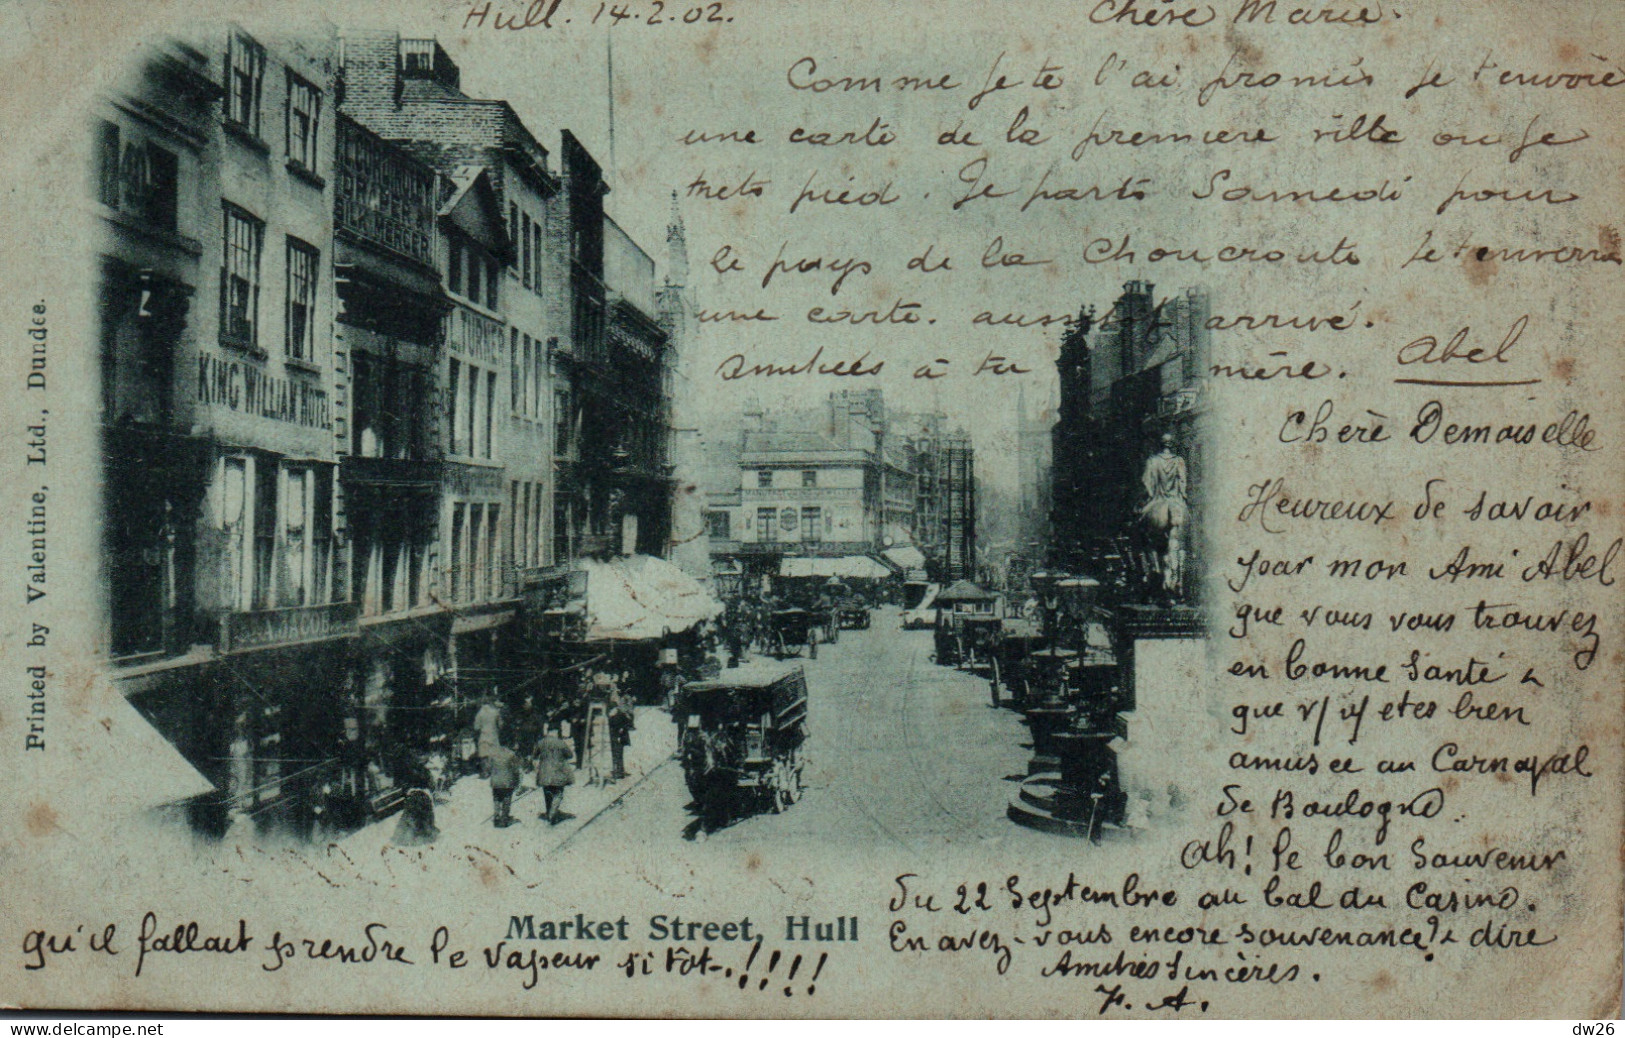 Hull. 14.2.02.
Chère Marie.
Comme je te l'ai promis je t'envoie
une carte de la première ville ou je
mets pied. Je parts Samedi pour
le pays de la Choucroute je t'enverrai
une carte. aussitot arrivé.
Amitiées à ta mère. Abel
Cherè Demoiselle
Heureux de savoir
par mon Ami Abel
que vous vous trouvez
en bonne Santé &
que v/ v/ etes bien
amusée au Carnaval
de Boulogne.
Ah! le bon Souvenir
du 22 Septembre au bal du Casino.
En avez-vous encore souvenance? & dire
qu'il fallait prendre le vapeur si tôt-.!!!!!
Amitiés Sincères.
F. A.
Market Street, Hull
Printed by Valentine, Ltd., Dundee.
SILK MERCER
TURNER
KING WILLIAM HOTEL
A. JACOB
dw26